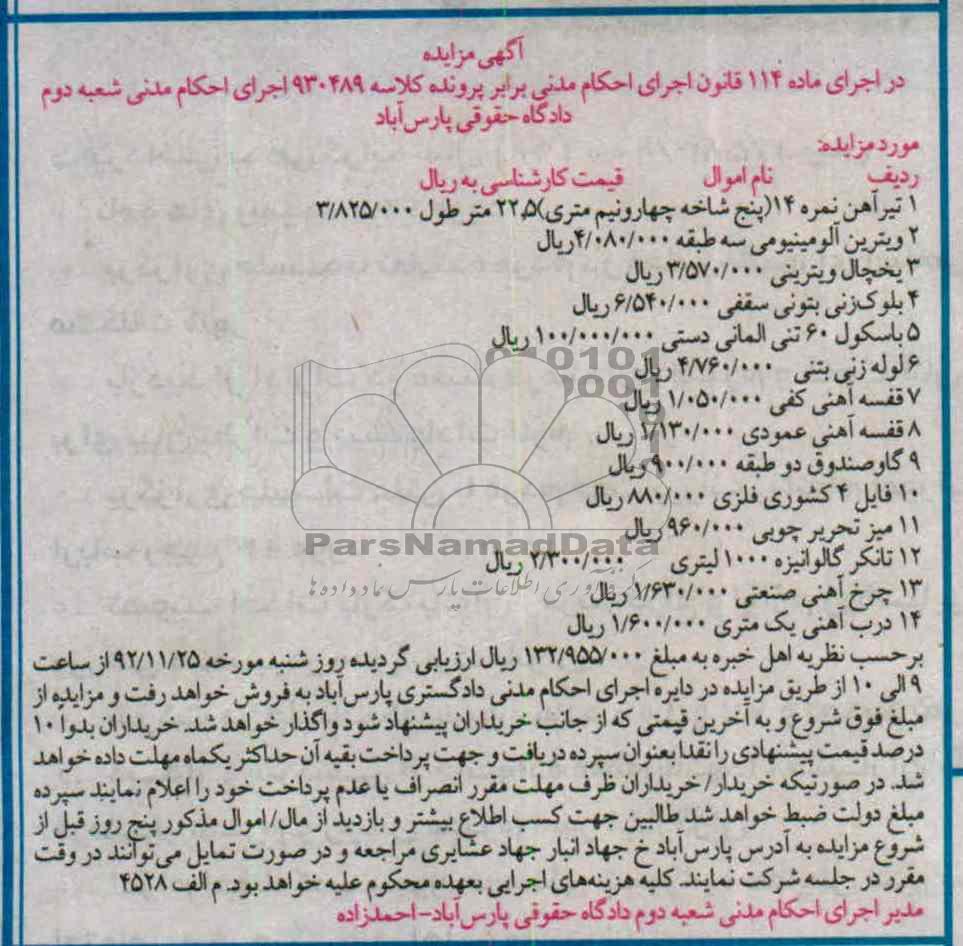 آگهی مزایده
در اجرای ماده ۱۱۴ قانون اجرای احکام مدنی برابر پرونده کلاسه ۹۳۰۴۸۹ اجرای احکام مدنی شعبه دوم
دادگاه حقوقی پارس‌آباد
مورد مزایده:
ردیف نام اموال قیمت کارشناسی به ریال
۱ تیرآهن نمره ۱۴(پنج شاخه چهارونیم متری)۲۲,۵ متر طول ۳/۸۲۵/۰۰۰
۲ ویترین آلومینیومی سه طبقه ۴/۰۸۰/۰۰۰ریال
۳ یخچال ویترینی ۳/۵۷۰/۰۰۰ ریال
۴ بلوک‌زنی بتونی سقفی ۶/۵۴۰/۰۰۰ ریال
۵ باسکول ۶۰ تنی المانی دستی ۱۰۰/۰۰۰/۰۰۰ ریال
۶ لوله زنی بتنی ۴/۷۶۰/۰۰۰ ریال
۷ قفسه آهنی کفی ۱/۰۵۰/۰۰۰ ریال
۸ قفسه آهنی عمودی ۱/۱۳۰/۰۰۰ ریال
۹ گاوصندوق دو طبقه ۹۰۰/۰۰۰ ریال
۱۰ فایل ۴ کشوری فلزی ۸۸۰/۰۰۰ ریال
۱۱ میز تحریر چوبی ۹۶۰/۰۰۰ ریال
ParsNamadData
۱۲ تانکر گالوانیزه ۱۰۰۰ لیتری ۲/۳۰۰/۰۰۰ ریال
۱۳ چرخ آهنی صنعتی ۱/۶۳۰/۰۰۰ ریال
۱۴ درب آهنی یک متری ۱/۶۰۰/۰۰۰ ریال
برحسب نظریه اهل خبره به مبلغ ۱۳۲/۹۵۵/۰۰۰ ریال ارزیابی گردیده روز شنبه مورخه ۹۲/۱۱/۲۵ از ساعت
۹ الی ۱۰ از طریق مزایده در دایره اجرای احکام مدنی دادگستری پارس‌آباد به فروش خواهد رفت و مزایده از
مبلغ فوق شروع و به آخرین قیمتی که از جانب خریداران پیشنهاد شود واگذار خواهد شد. خریداران بدوا ۱۰
درصد قیمت پیشنهادی را نقدا بعنوان سپرده دریافت و جهت پرداخت بقیه آن حداکثر یکماه مهلت داده خواهد
شد. در صورتیکه خریدار/ خریداران ظرف مهلت مقرر انصراف یا عدم پرداخت خود را اعلام نمایند سپرده
مبلغ دولت ضبط خواهد شد طالبین جهت کسب اطلاع بیشتر و بازدید از مال/ اموال مذکور پنج روز قبل از
شروع مزایده به آدرس پارس‌آباد خ جهاد انبار جهاد عشایری مراجعه و در صورت تمایل می‌توانند در وقت
مقرر در جلسه شرکت نمایند. کلیه هزینه‌های اجرایی بعهده محکوم علیه خواهد بود. م الف ۴۵۲۸
مدیر اجرای احکام مدنی شعبه دوم دادگاه حقوقی پارس‌آباد-احمدزاده